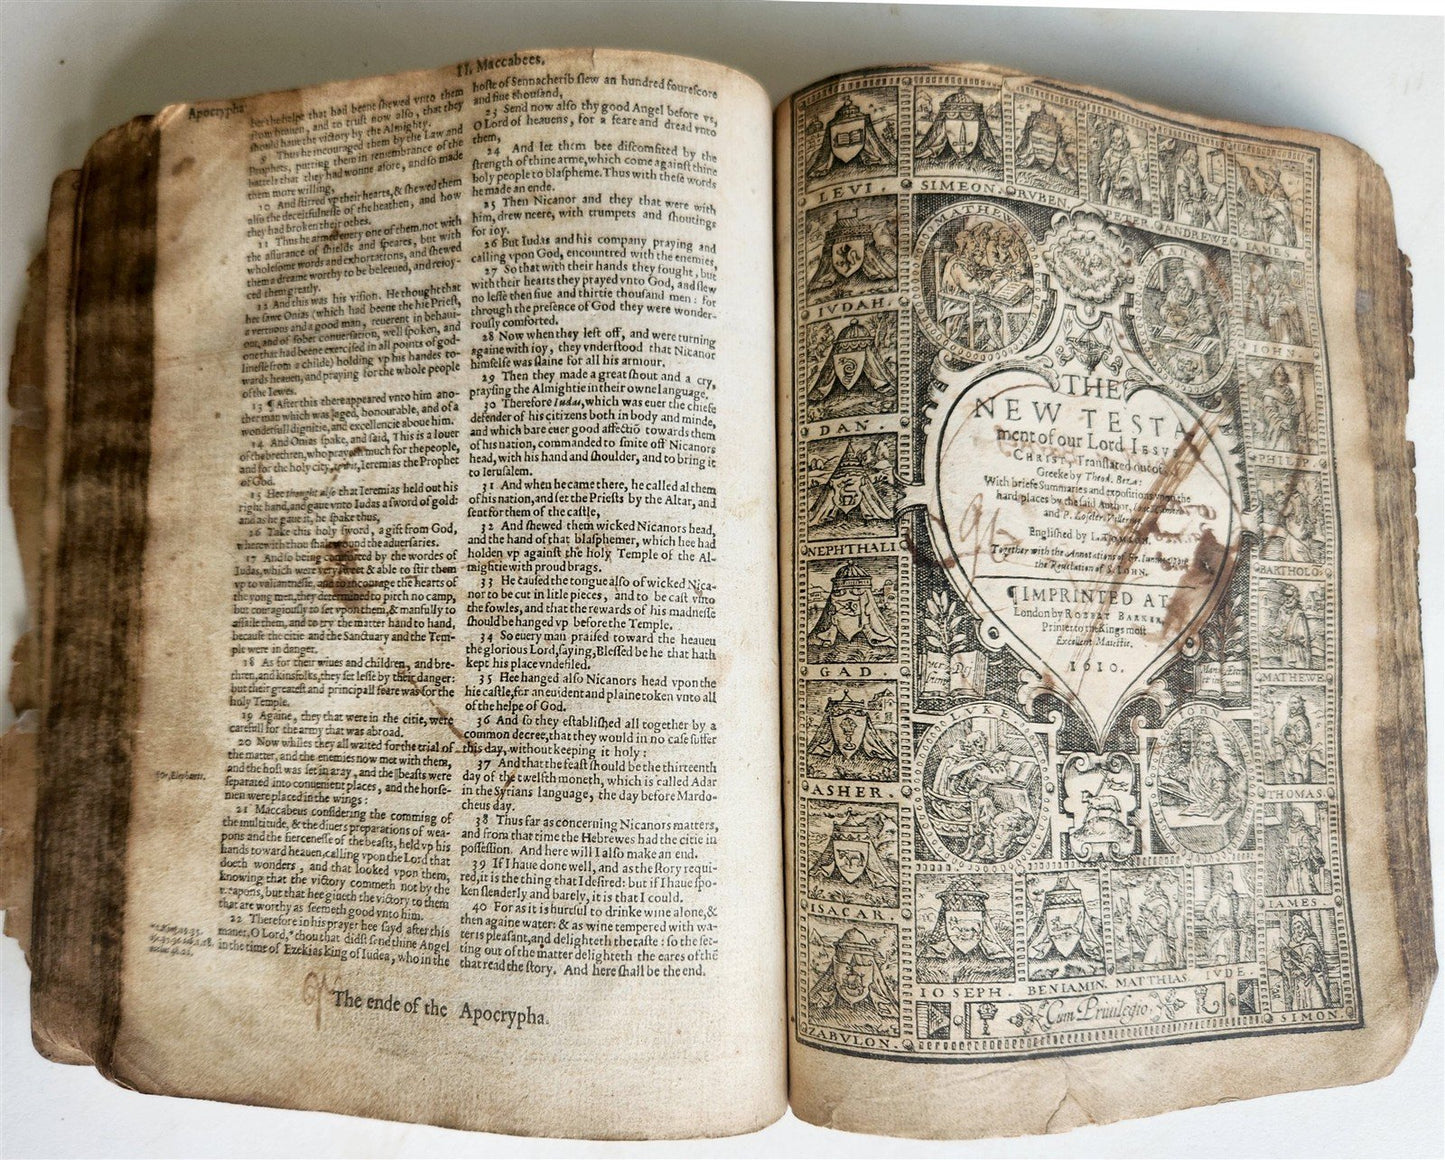 Apocrypha.
II. Maccabees.
for the helpe that had beene ſhewed vnto them
from heauen, and to truſt now alſo, that they
ſhould haue the victory by the Almighty.
9 Thus he incouraged them by the Law and
Prophets, putting them in remembrance of the
battels that they had wonne afore, and ſo made
them more willing,
10 And ſtirred vp their hearts, & ſhewed them
alſo the deceitfulneſſe of the heathen, and how
they had broken their othes.
11 Thus he armed euery one of them, not with
the aſſurance of ſhields and ſpeares, but with
wholeſome words and exhortations, and ſhewed
them a dreame worthy to be beleeued, and reioy-
ced them greatly.
12 And this was his viſion. He thought that
hee ſawe Onias (which had beene the hie Prieſt,
a vertuous and a good man, reuerent in behaui-
our, and of ſober conuerſation, well ſpoken, and
one that had beene exerciſed in all points of god-
lineſſe from a childe) holding vp his handes to-
wards heauen, and praying for the whole people
of the Iewes.
13 ¶ After this there appeared vnto him ano-
ther man which was aged, honourable, and of a
wonderfull dignitie, and excellencie aboue him.
14 And Onias ſpake, and ſaid, This is a louer
of the brethren, who prayeth much for the people,
and for the holy city, to wit, Ieremias the Prophet
of God.
15 Hee thought alſo that Ieremias held out his
right hand, and gaue vnto Iudas a ſword of gold:
and as he gaue it, he ſpake thus,
16 Take this holy ſword, a gift from God,
wherewith thou ſhalt wound the aduerſaries.
17 And ſo being comforted by the wordes of
Iudas, which were very ſweet & able to ſtir them
vp to valiantneſſe, and to encourage the hearts of
the yong men, they determined to pitch no camp,
but couragiouſly to ſet vpon them, & manfully to
aſſaile them, and to try the matter hand to hand,
becauſe the citie and the Sanctuary and the Tem-
ple were in danger.
18 As for their wiues and children, and bre-
thren, and kinsfolks, they ſet leſſe by their danger:
but their greateſt and principall feare was for the
holy Temple.
19 Againe, they that were in the citie, were
carefull for the army that was abroad.
20 Now whiles they all waited for the trial of
the matter, and the enemies now met with them,
and the hoſt was ſet in aray, and the || beaſts were
ſeparated into conuenient places, and the horſe-
men were placed in the wings:
||Or, Elephants.
21 Maccabeus conſidering the comming of
the multitude, & the diuers preparations of wea-
pons and the fierceneſſe of the beaſts, held vp his
hands toward heauen, calling vpon the Lord that
doeth wonders, and that looked vpon them,
knowing that the victory commeth not by the
weapons, but that hee giueth the victory to them
that are worthy as ſeemeth good vnto him.
22 Therefore in his prayer hee ſayd after this
maner, O Lord, * thou that didſt ſend thine Angel
in the time of Ezekias King of Iudea, who in the
hoſte of Sennacherib ſlew an hundred foureſcore
and fiue thouſand,
23 Send now alſo thy good Angel before vs,
O Lord of heauens, for a feare and dread vnto
them,
24 And let them bee diſcomfited by the
ſtrength of thine arme, which come againſt thine
holy people to blaſpheme. Thus with theſe words
he made an ende.
25 Then Nicanor and they that were with
him, drew neere, with trumpets and ſhoutings
for ioy.
26 But Iudas and his company praying and
calling vpon God, encountred with the enemies,
27 So that with their hands they fought, but
with their hearts they prayed vnto God, and ſlew
no leſſe then fiue and thirtie thouſand men: for
through the preſence of God they were wonder-
rouſly comforted.
28 Now when they left off, and were turning
againe with ioy, they vnderſtood that Nicanor
himſelfe was ſlaine for all his armour.
29 Then they made a great ſhout and a cry,
prayſing the Almightie in their owne language.
30 Therefore Iudas, which was euer the chiefe
defender of his citizens both in body and minde,
and which bare euer good affectiõ towards them
of his nation, commanded to ſmite off Nicanors
head, with his hand and ſhoulder, and to bring it
to Ieruſalem.
31 And when he came there, he called al them
of his nation, and ſet the Prieſts by the Altar, and
ſent for them of the caſtle,
32 And ſhewed them wicked Nicanors head,
and the hand of that blaſphemer, which hee had
holden vp againſt the holy Temple of the Al-
mightie with proud brags.
33 He cauſed the tongue alſo of wicked Nica-
nor to be cut in litle pieces, and to be caſt vnto
the fowles, and that the rewards of his madneſſe
ſhould be hanged vp before the Temple.
34 So euery man praiſed toward the heauen
the glorious Lord, ſaying, Bleſſed be he that hath
kept his place vndefiled.
35 Hee hanged alſo Nicanors head vpon the
hie caſtle, for an euident and plaine token vnto all
of the helpe of God.
36 And ſo they eſtabliſhed all together by a
common decree, that they would in no caſe ſuffer
this day, without keeping it holy:
37 And that the feaſt ſhould be the thirteenth
day of the twelfth moneth, which is called Adar
in the Syrians language, the day before Mardo-
cheus day.
38 Thus far as concerning Nicanors matters,
and from that time the Hebrewes had the citie in
poſſeſſion. And here will I alſo make an end.
39 If I haue done well, and as the ſtory requi-
red, it is the thing that I deſired: but if I haue ſpo-
ken ſlenderly and barely, it is that I could.
40 For as it is hurtful to drinke wine alone, &
then againe water: & as wine tempered with wa-
ter is pleaſant, and delighteth the taſte: ſo the ſet-
ting out of the matter delighteth the eares of thẽ
that read the ſtory. And here ſhall be the end.
The ende of the Apocrypha.
LEVI.
SIMEON.
RVBEN.
PETER
ANDREWE
IAME
IVDAH.
MATHEW
IOHN.
DAN.
PHILIP.
NEPHTHALI
BARTHOLO.
GAD.
MATHEWE
ASHER.
LVKE.
IOHN
THOMAS.
ISACAR.
IAMES
IOSEPH.
BENIAMIN.
MATTHIAS.
IVDE.
SIMON.
ZABVLON.
THE
NEW TESTA
ment of our Lord IESVS
CHRIST, Tranſlated out of
Greeke by Theod. Beza:
With briefe Summaries and expoſitions vpon the
hard places by the ſaid Author, Ioac. Camer.
and P. Loſeler Villerius.
Engliſhed by L. TOMSON.
Together with the Annotations of Fr. Iunius vpon
the Reuelation of S. IOHN.
¶ IMPRINTED AT
London by ROBERT BARKER,
Printer to the Kings moſt
Excellent Maieſtie.
1610.
Cum Priuilegio.